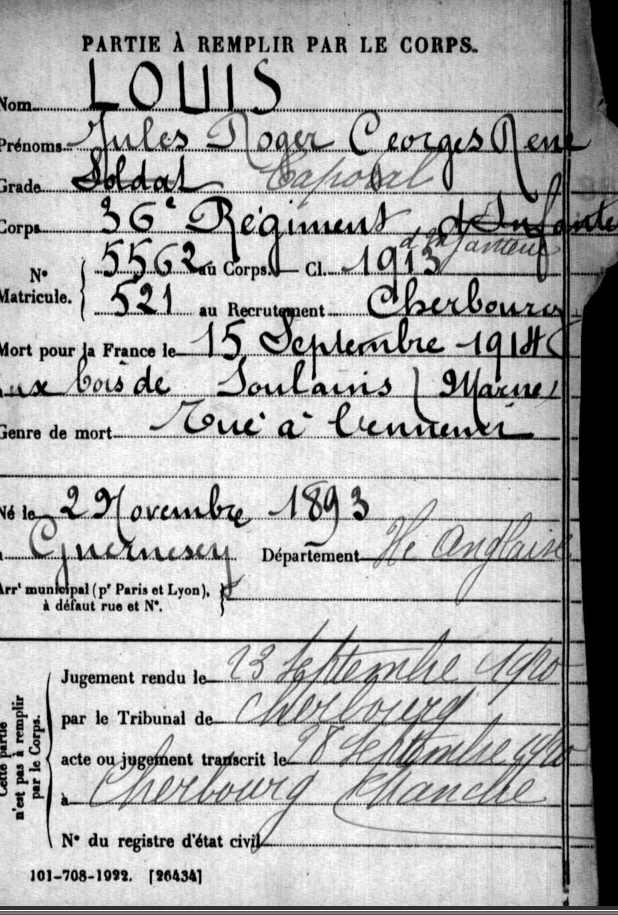 PARTIE À REMPLIR PAR LE CORPS.
Nom LOUIS
Prénoms Jules Roger Georges René
Grade Soldat Caporal
Corps 36e Régiment d'Infanterie
d'Infanterie
N° Matricule. { 5562 au Corps. — Cl. 1913
521 au Recrutement Cherbourg
Mort pour la France le 15 Septembre 1914
aux bois de Soulains (Marne)
Genre de mort Tué à l'ennemi
Né le 2 Novembre 1893
à Guernesey Département Ile Anglaise
Arrt municipal (pr Paris et Lyon),
à défaut rue et N°.
Cette partie n'est pas à remplir par le Corps.
Jugement rendu le 23 Septembre 1920
par le Tribunal de Cherbourg
acte ou jugement transcrit le 28 Septembre 1920
à Cherbourg Manche
N° du registre d'état civil
101-708-1922. [26434]